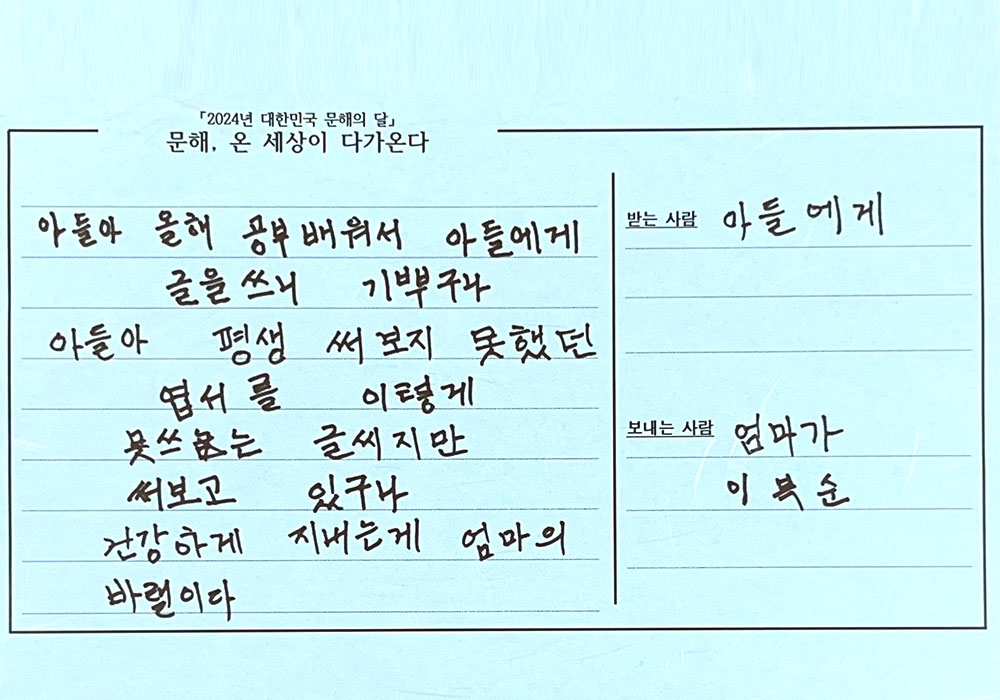 「2024년 대한민국 문해의 달」
문해, 온 세상이 다가온다
아들아 올해 공부배워서 아들에게
글을 쓰니 기쁘구나
아들아 평생 써보지 못했던
엽서를 이렇게
못쓰는 글씨지만
써보고 있구나
건강하게 지내는게 엄마의
바럼이다
받는 사람 아들에게
보내는 사람 엄마가
이복순